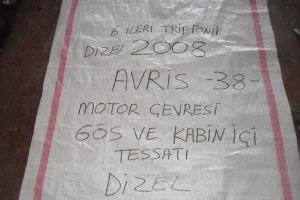 6 İLERİ TRİPTONİK
DİZEL 2008
AVRİS -38-
MOTOR ÇEVRESİ
GÖS VE KABİN İÇİ
TESSATI
DİZEL